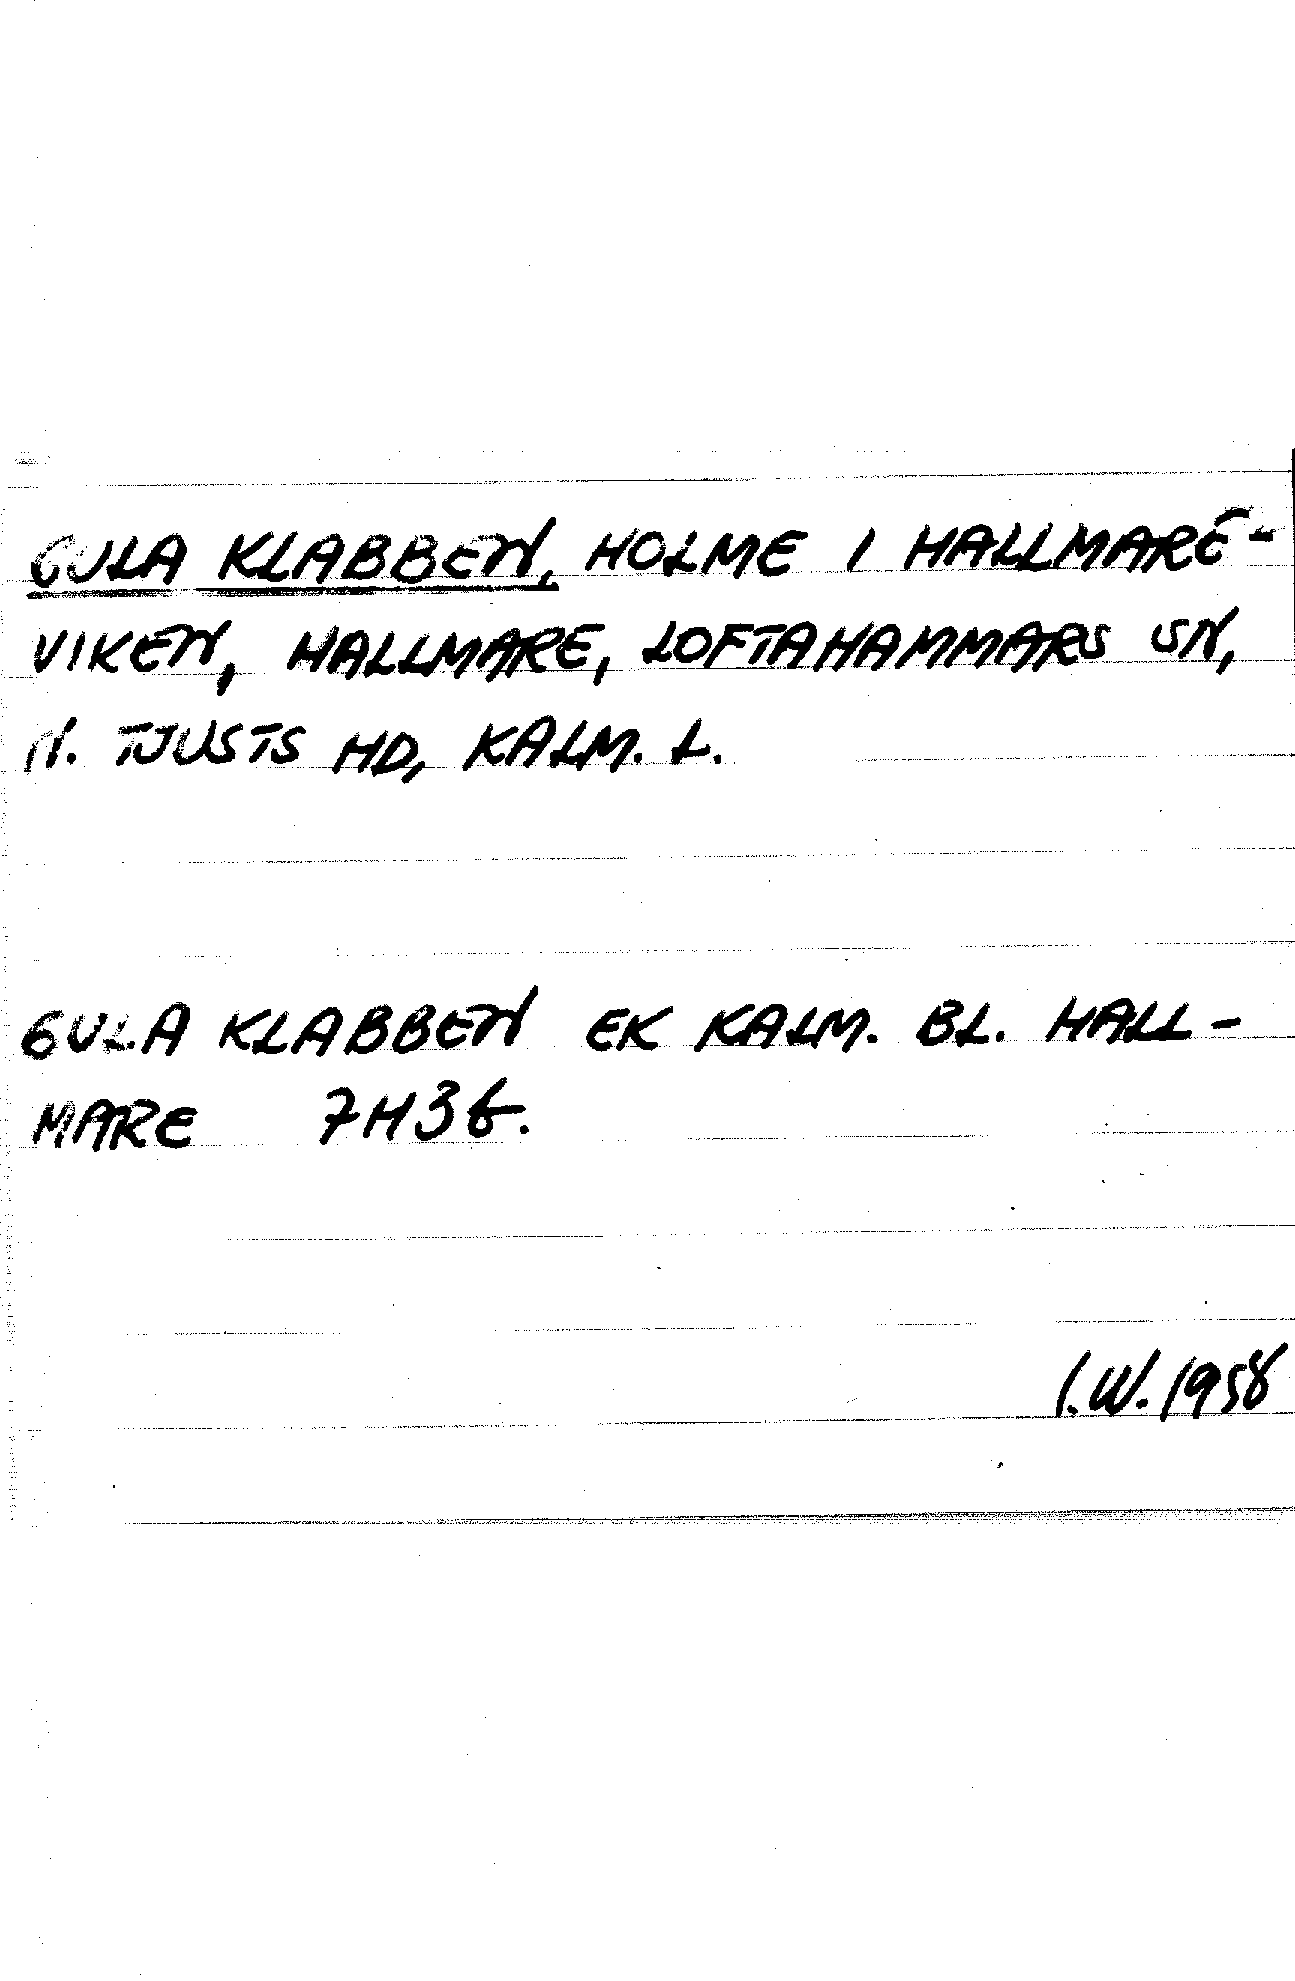 GULA KLABBEN, HOLME I HALLMARE-
VIKEN, HALLMARE, LOFTAHAMMARS SN,
N. TJUSTS HD, KALM. L.
GULA KLABBEN EK KALM. BL. HALL-
MARE 7H3f.
I.W. 1958